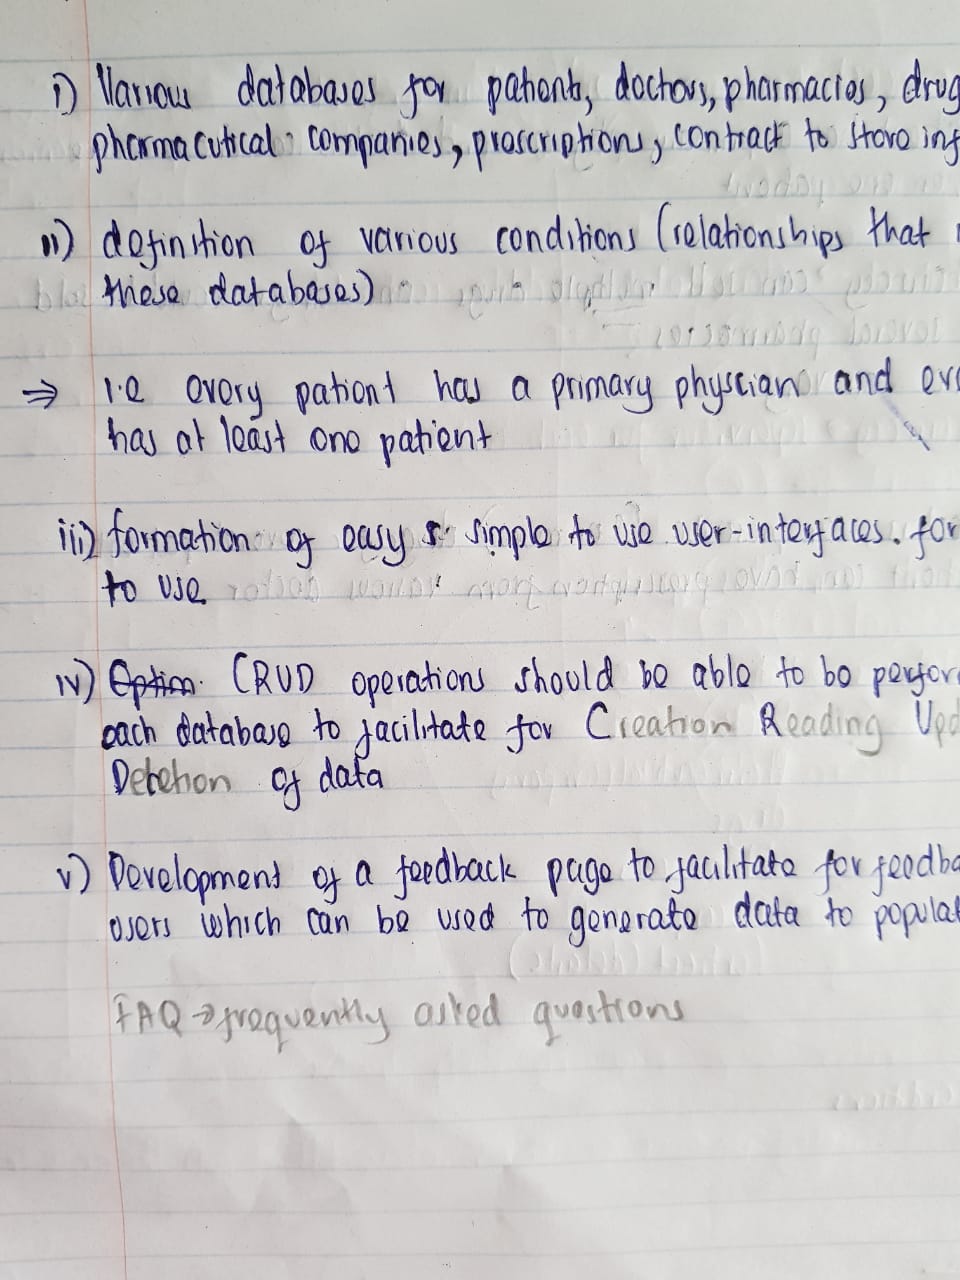 i) Various databases for patients, doctors, pharmacies, drug
pharmacutical companies, prescriptions, contract to store inf
ii) definition of various conditions (relationships that
these databases)
⇒ i.e every patient has a primary physcian and eve
has at least one patient
iii) formation of easy & simple to use user-interfaces. for
to use
iv) Option. CRUD operations should be able to be perfor
each database to facilitate for Creation Reading Upd
Deletion of data
v) Development of a feedback page to facilitate for feedba
users which can be used to generate data to populat
FAQ → frequently asked questions